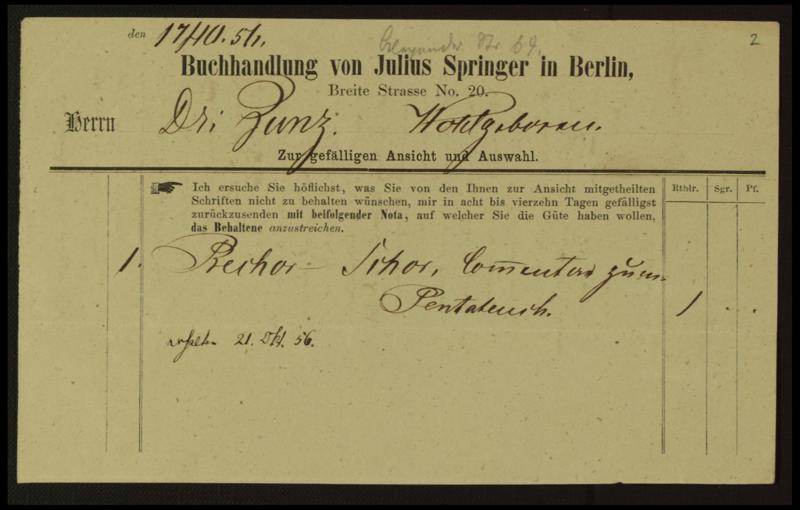 den 17/10.56. 2
Alexander Str 64.
Buchhandlung von Julius Springer in Berlin,
Breite Strasse No. 20.
Herrn Dr. Zunz. Wohlgeboren.
Zur gefälligen Ansicht und Auswahl.
Ich ersuche Sie höflichst, was Sie von den Ihnen zur Ansicht mitgetheilten
Schriften nicht zu behalten wünschen, mir in acht bis vierzehn Tagen gefälligst
zurückzusenden mit beifolgender Nota, auf welcher Sie die Güte haben wollen,
das Behaltene anzustreichen.
Rthlr. Sgr. Pf.
1. Bechor-Schor, Commentar zum
Pentateuch. 1 . .
21. Okt. 56.